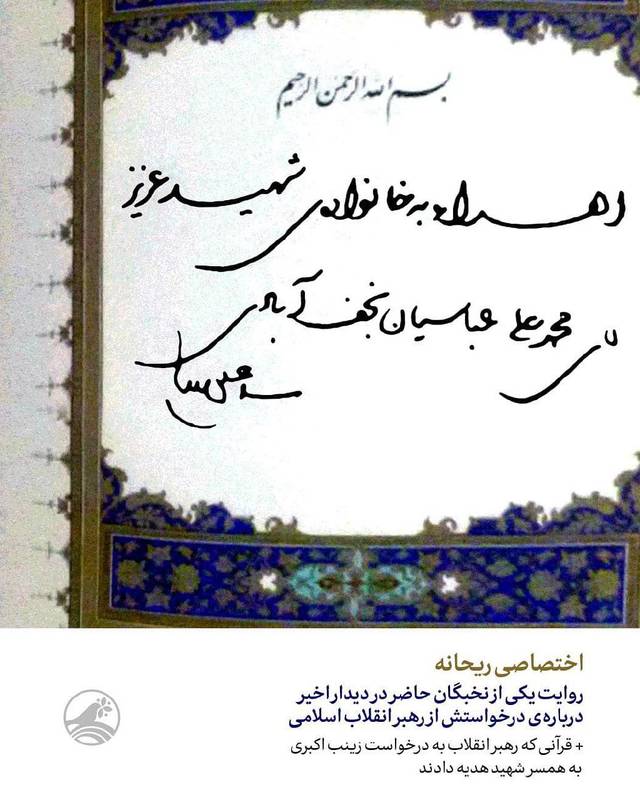 بسم الله الرحمن الرحیم
اهداء به خانواده‌ی شهید عزیز
محمد علی عباسیان نجف آبادی
اختصاصی ریحانه
روایت یکی از نخبگان حاضر در دیدار اخیر
درباره‌ی درخواستش از رهبر انقلاب اسلامی
+ قرآنی که رهبر انقلاب به درخواست زینب اکبری
به همسر شهید هدیه دادند